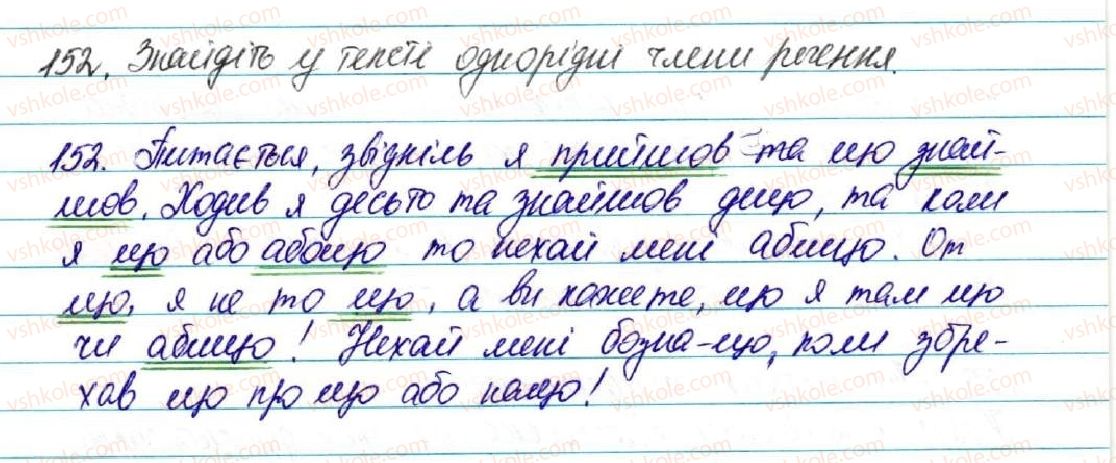 152. Знайдіть у тексті однорідні члени речення.
152. Питається, звідкіль я прийшов та що знай-
шов. Ходив я десьто та знайшов дещо, та коли
я що або абощо то нехай мені абищо. От
що, я не то що, а ви кажете, що я там що
чи абищо! Нехай мені бозна-що, коли збре-
хав що про що або нащо!